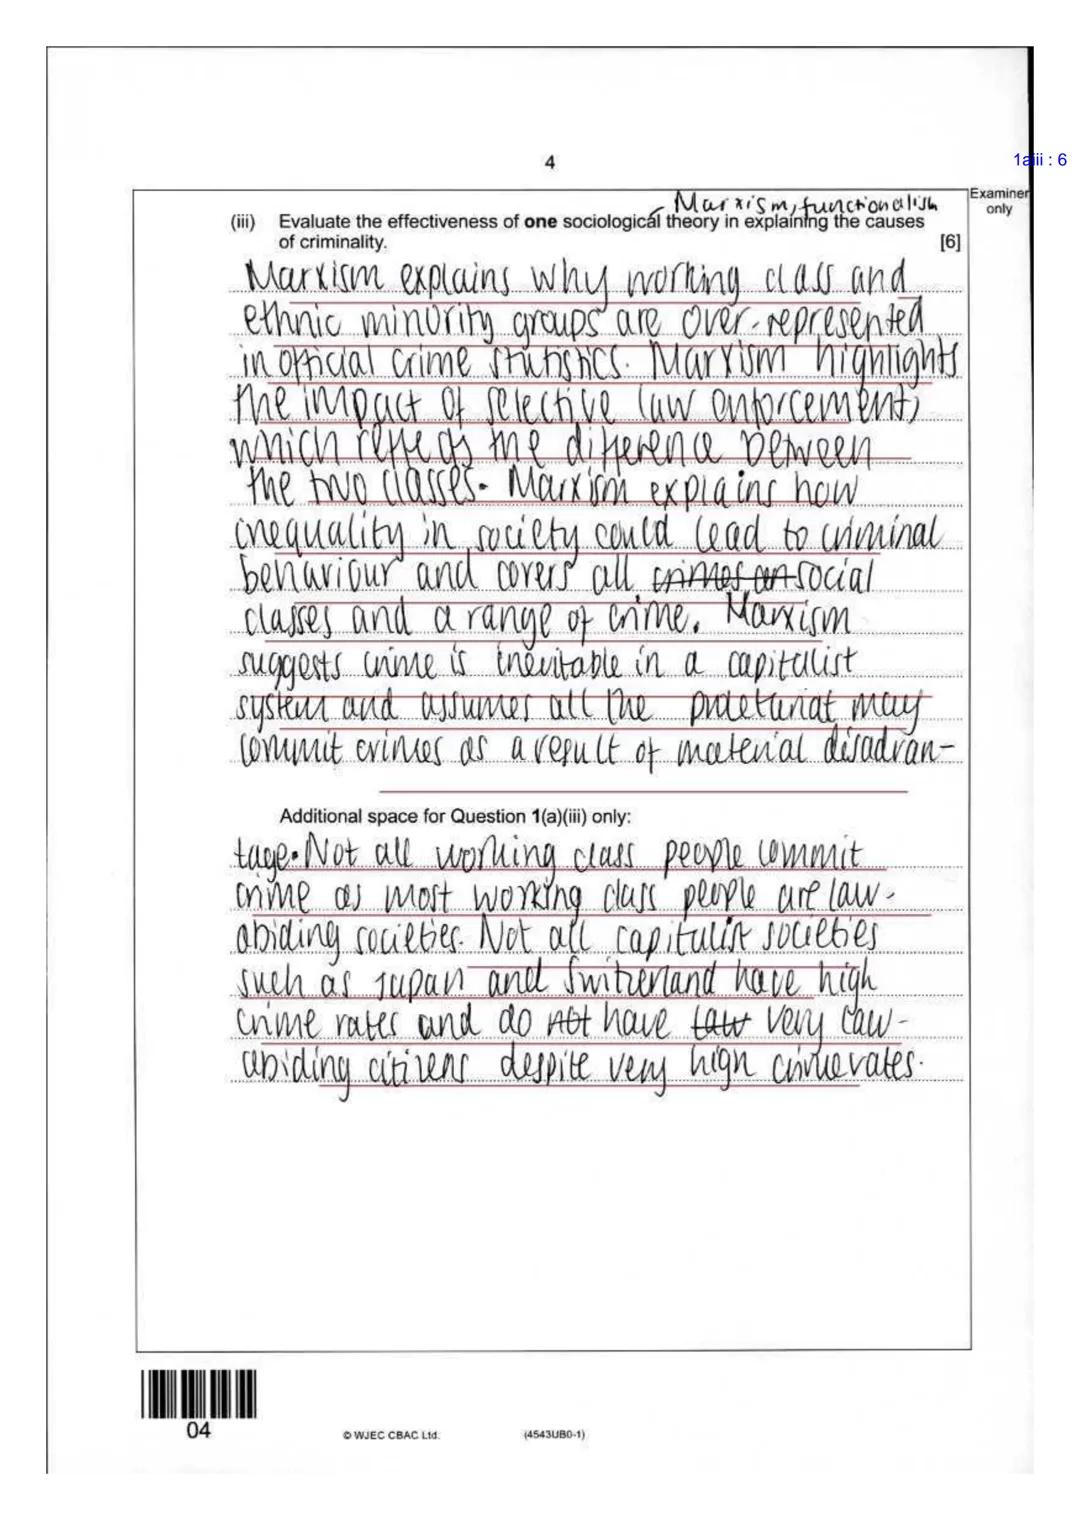 4
1aiii : 6
Examiner
only
Marxism, functionalism
(iii) Evaluate the effectiveness of one sociological theory in explaining the causes
of criminality. [6]
Marxism explains why working class and
ethnic minority groups are over-represented
in official crime statistics. Marxism highlights
the impact of selective law enforcement,
which reflects the difference between
the two classes. Marxism explains how
inequality in society could lead to criminal
behaviour and covers all crimes an social
classes and a range of crime. Marxism
suggests crime is inevitable in a capitalist
system and assumes all the proletariat may
commit crimes as a result of material disadvan-
Additional space for Question 1(a)(iii) only:
tage. Not all working class people commit
crime as most working class people are law-
abiding societies. Not all capitalist societies
such as Japan and Switzerland have high
crime rates and do not have law very law-
abiding citizens despite very high crime rates.
04
© WJEC CBAC Ltd.
(4543UB0-1)